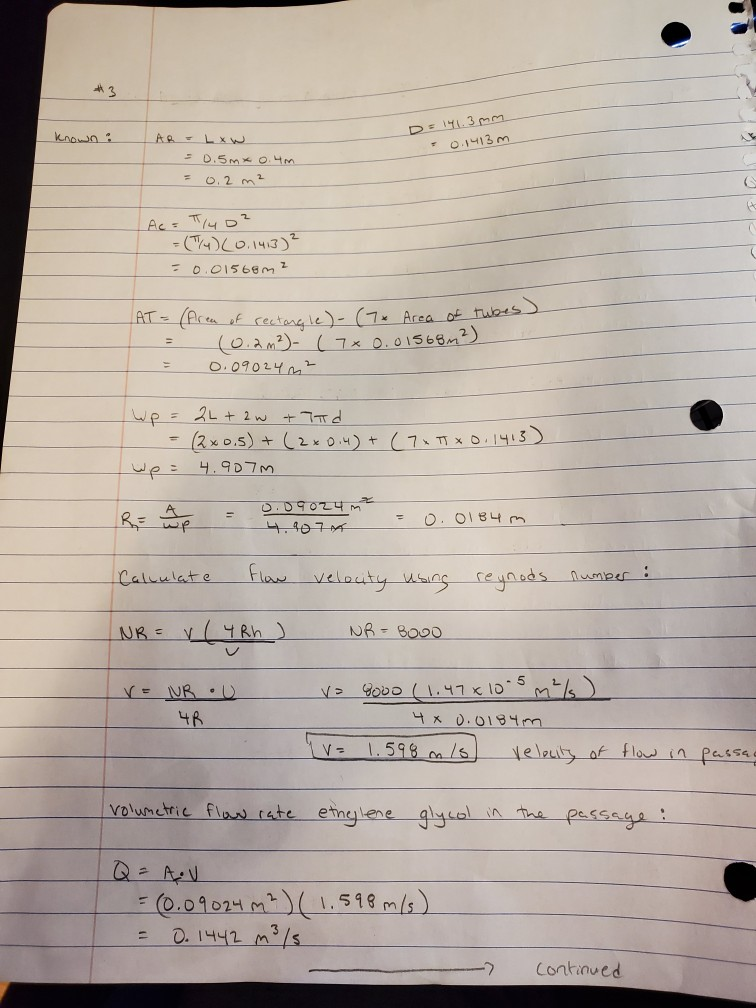 #3
Known : AR = L x W D = 141.3 mm
= 0.5m x 0.4m = 0.1413 m
= 0.2 m²
Ac = π/4 D²
= (π/4)(0.1413)²
= 0.01568m²
AT = (Area of rectangle) - (7 x Area of tubes)
= (0.2m²) - (7 x 0.01568m²)
= 0.09024m²
Wp = 2L + 2w + 7πd
= (2x0.5) + (2x0.4) + (7 x π x 0.1413)
Wp = 4.907m
Rh = A/wp = 0.09024m²/4.907m = 0.0184m
Calculate flow velocity using reynods number :
NR = V(4Rh)/υ NR = 8000
V = NR • υ/4R V = 8000 (1.47 x 10^-5 m²/s)/4 x 0.0184m
V = 1.598 m/s velocity of flow in passag
volumetric flow rate ethylene glycol in the passage :
Q = A•V
= (0.09024m²)(1.598 m/s)
= 0.1442 m³/s
→ continued